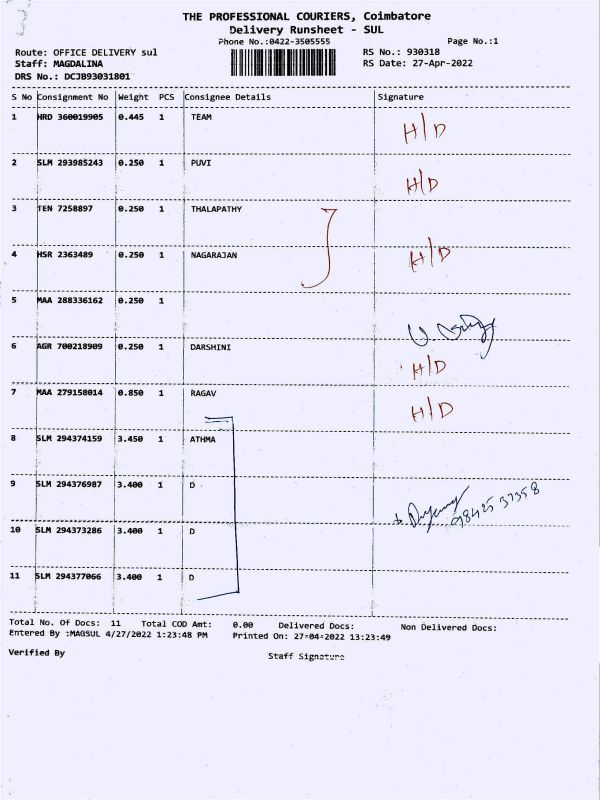 THE PROFESSIONAL COURIERS, Coimbatore
Delivery Runsheet - SUL
Phone No.:0422-3505555
Page No.:1
Route: OFFICE DELIVERY sul
RS No.: 930318
Staff: MAGDALINA
RS Date: 27-Apr-2022
DRS No.: DCJB93031801
S No Consignment No Weight PCS Consignee Details Signature
1 HRD 360019905 0.445 1 TEAM H/D
2 SLM 293985243 0.250 1 PUVI H/D
3 TEN 7258897 0.250 1 THALAPATHY
4 HSR 2363489 0.250 1 NAGARAJAN H/D
5 MAA 288336162 0.250 1
6 AGR 700218909 0.250 1 DARSHINI H/D
7 MAA 279158014 0.850 1 RAGAV H/D
8 SLM 294374159 3.450 1 ATHMA
9 SLM 294376987 3.400 1 D
98425 37358
10 SLM 294373286 3.400 1 D
11 SLM 294377066 3.400 1 D
Total No. Of Docs: 11 Total COD Amt: 0.00 Delivered Docs: Non Delivered Docs:
Entered By :MAGSUL 4/27/2022 1:23:48 PM Printed On: 27-04-2022 13:23:49
Verified By Staff Signature